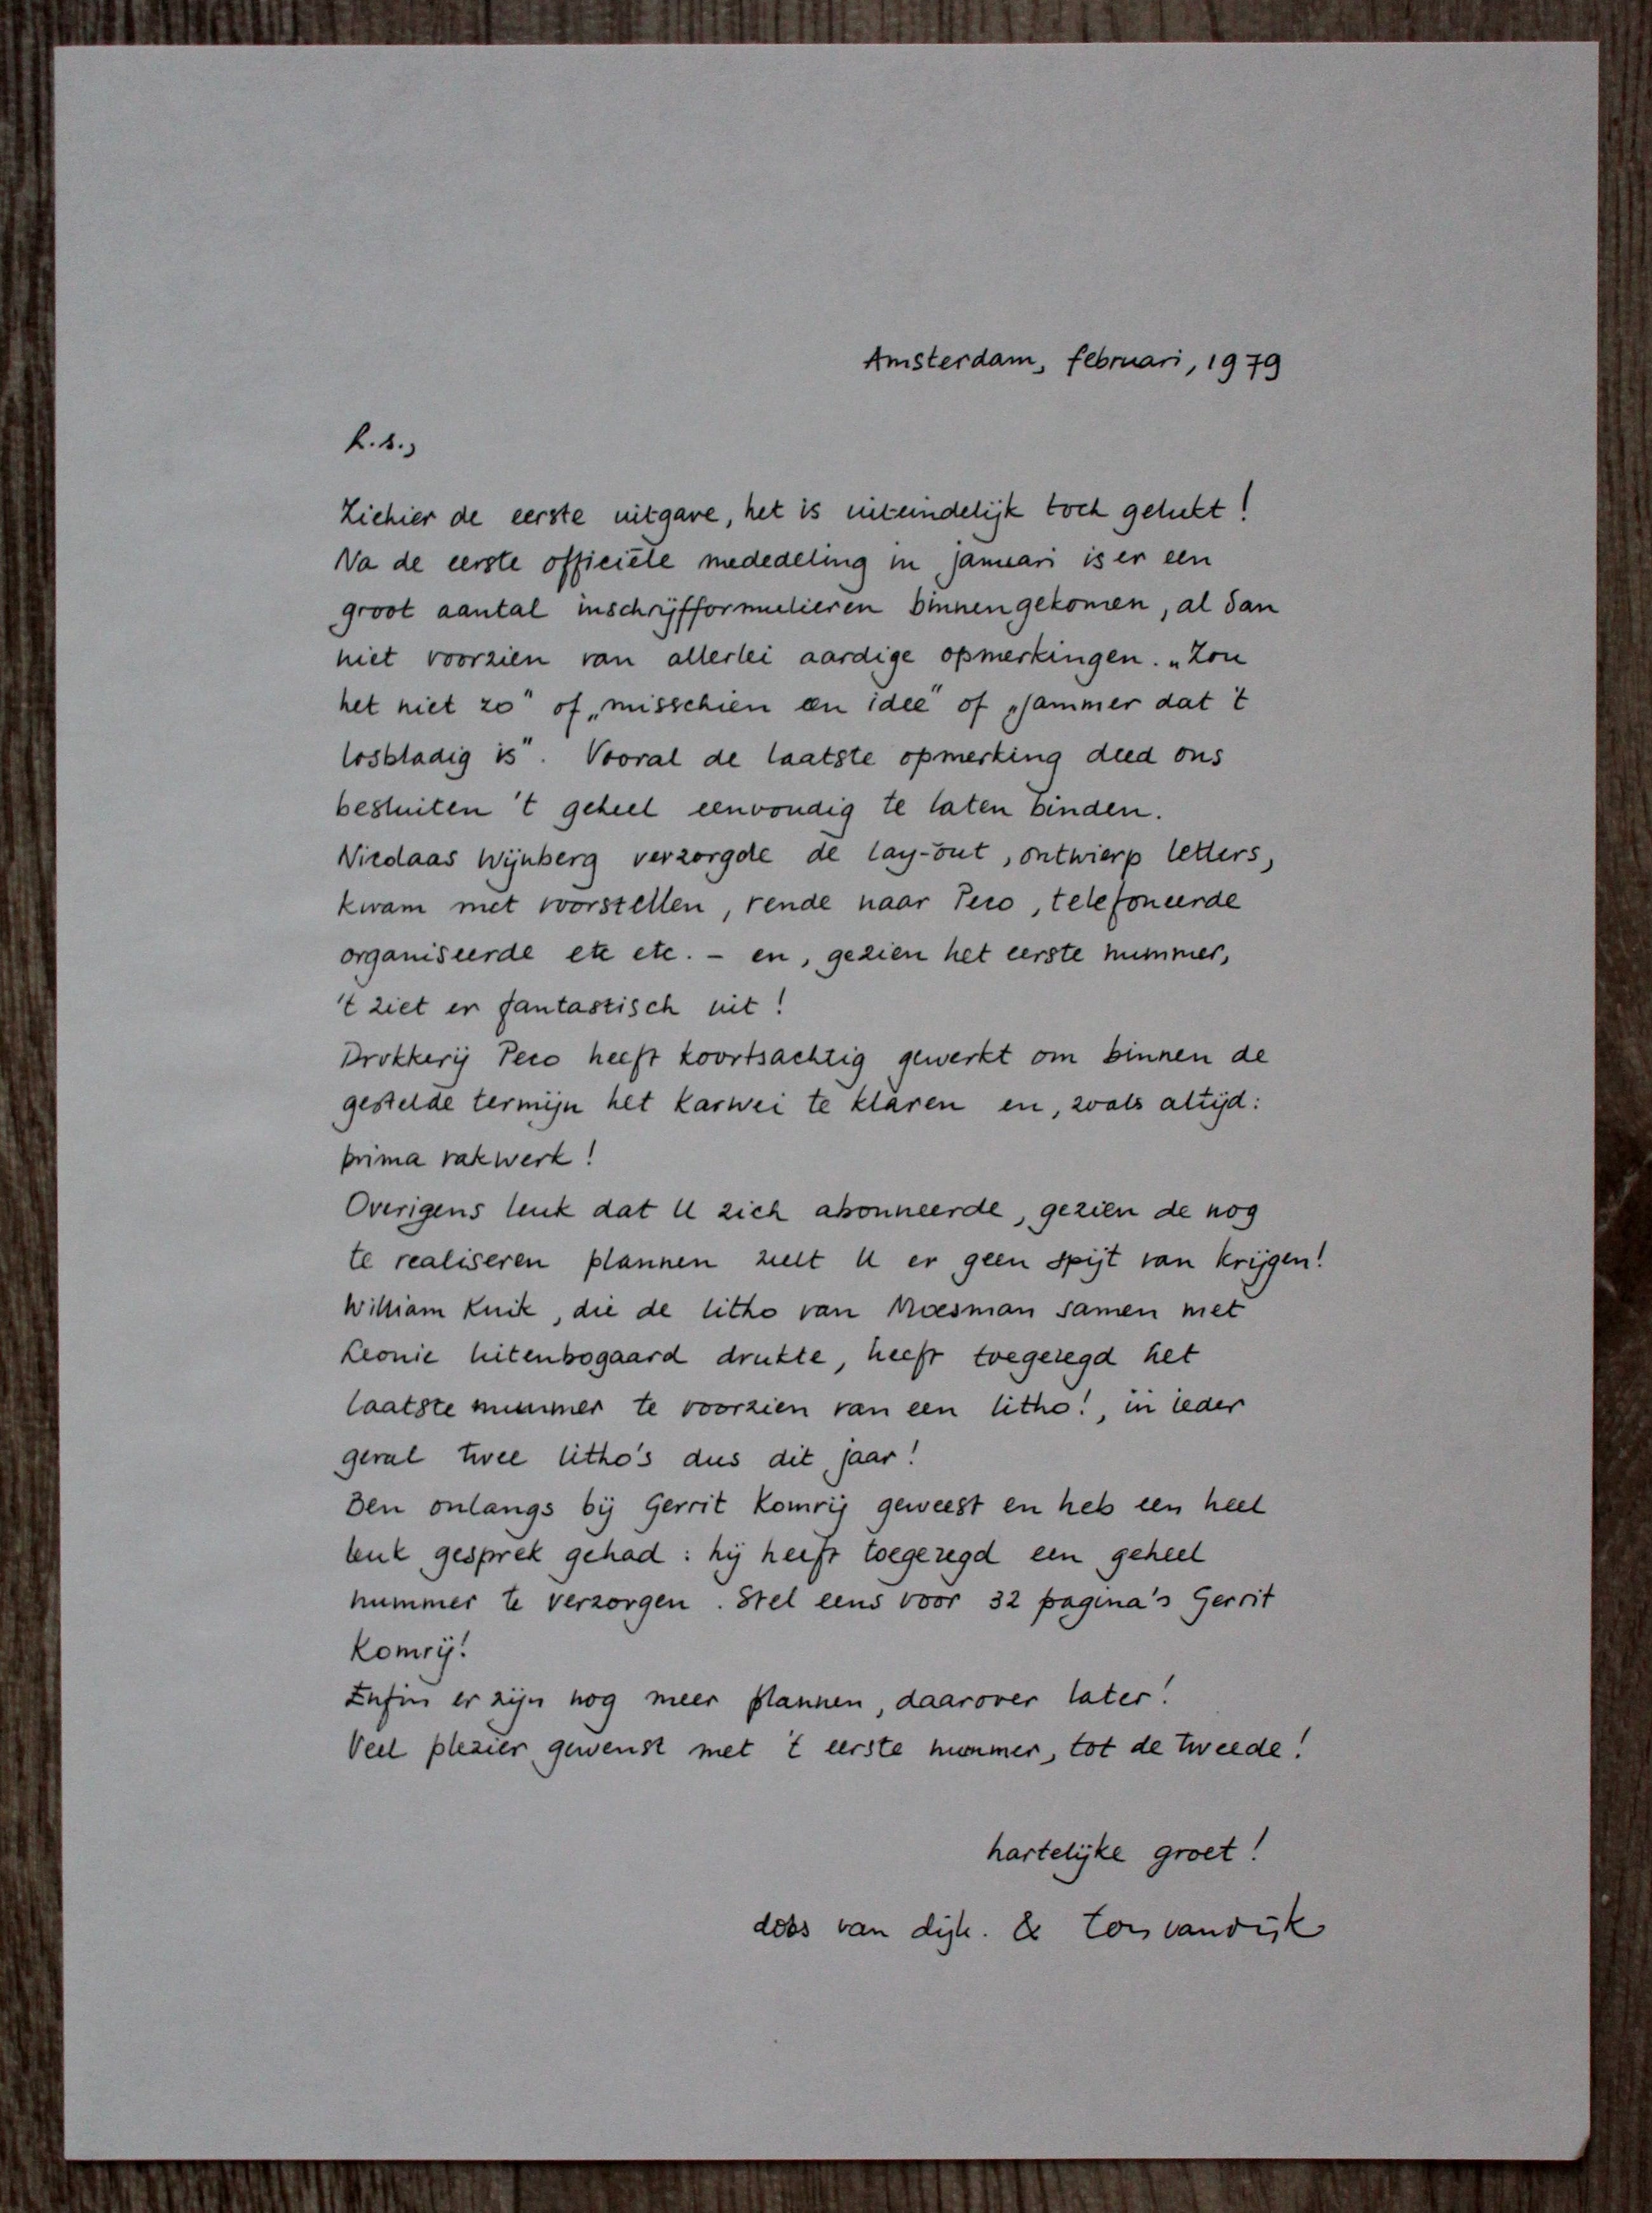 Amsterdam, februari, 1979
L.S.,
Ziehier de eerste uitgave, het is uiteindelijk toch gelukt!
Na de eerste officiële mededeling in januari is er een
groot aantal inschrijfformulieren binnengekomen, al dan
niet voorzien van allerlei aardige opmerkingen. „Zou
het niet zo" of „misschien een idee" of „jammer dat 't
losbladig is". Vooral de laatste opmerking deed ons
besluiten 't geheel eenvoudig te laten binden.
Nicolaas Wijnberg verzorgde de lay-out, ontwierp letters,
kwam met voorstellen, rende naar Peco, telefoneerde
organiseerde etc etc. – en, gezien het eerste nummer,
't ziet er fantastisch uit!
Drukkerij Peco heeft koortsachtig gewerkt om binnen de
gestelde termijn het karwei te klaren en, zoals altijd:
prima vakwerk!
Overigens leuk dat U zich abonneerde, gezien de nog
te realiseren plannen zult U er geen spijt van krijgen!
William Kuik, die de litho van Moesman samen met
Leonie Uitenbogaard drukte, heeft toegezegd het
laatste nummer te voorzien van een litho!, in ieder
geval twee litho's dus dit jaar!
Ben onlangs bij Gerrit Komrij geweest en heb een heel
leuk gesprek gehad: hij heeft toegezegd een geheel
nummer te verzorgen. Stel eens voor 32 pagina's Gerrit
Komrij!
Enfin er zijn nog meer plannen, daarover later!
Veel plezier gewenst met 't eerste nummer, tot de tweede!
hartelijke groet!
van dijk. & ton van dijk